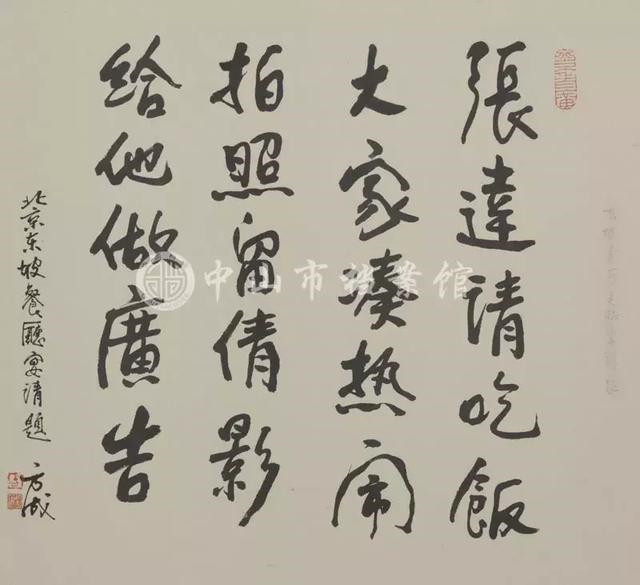 張達請吃飯
大家凑热闹
拍照留倩影
给他做廣告
北京东坡餐廳宴请题 方成
中山市 馆